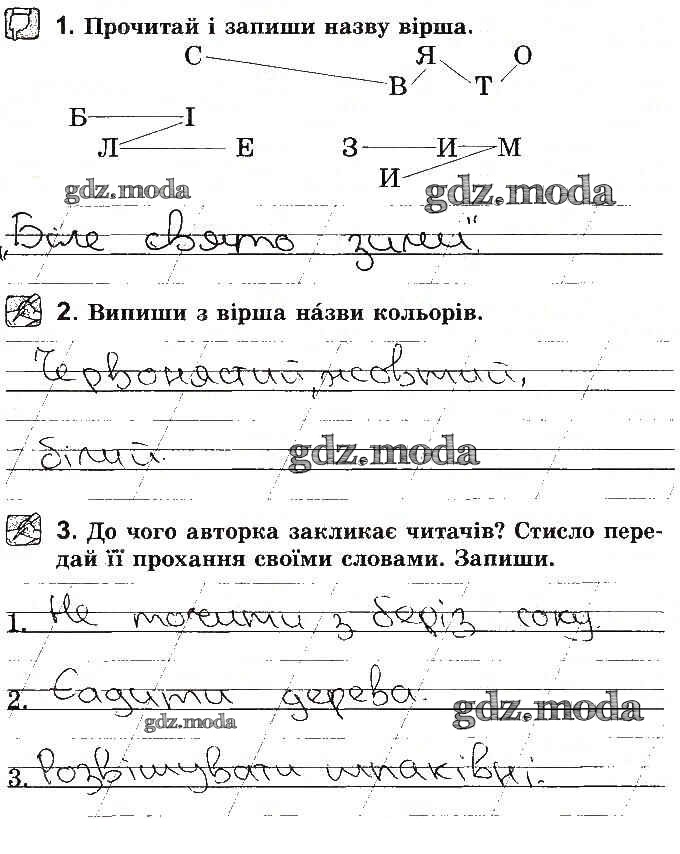 1. Прочитай і запиши назву вірша.
С Я О
В Т
Б І
Л Е З И М
И
gdz.moda gdz.moda
„Біле свято зими".
2. Випиши з вірша на́зви кольорів.
Червонястий, жовтий,
білий. gdz.moda
3. До чого авторка закликає читачів? Стисло пере-
дай її прохання своїми словами. Запиши.
1. Не точити з беріз соку.
2. Садити дерева. gdz.moda
gdz.moda
3. Розвішувати шпаківні.